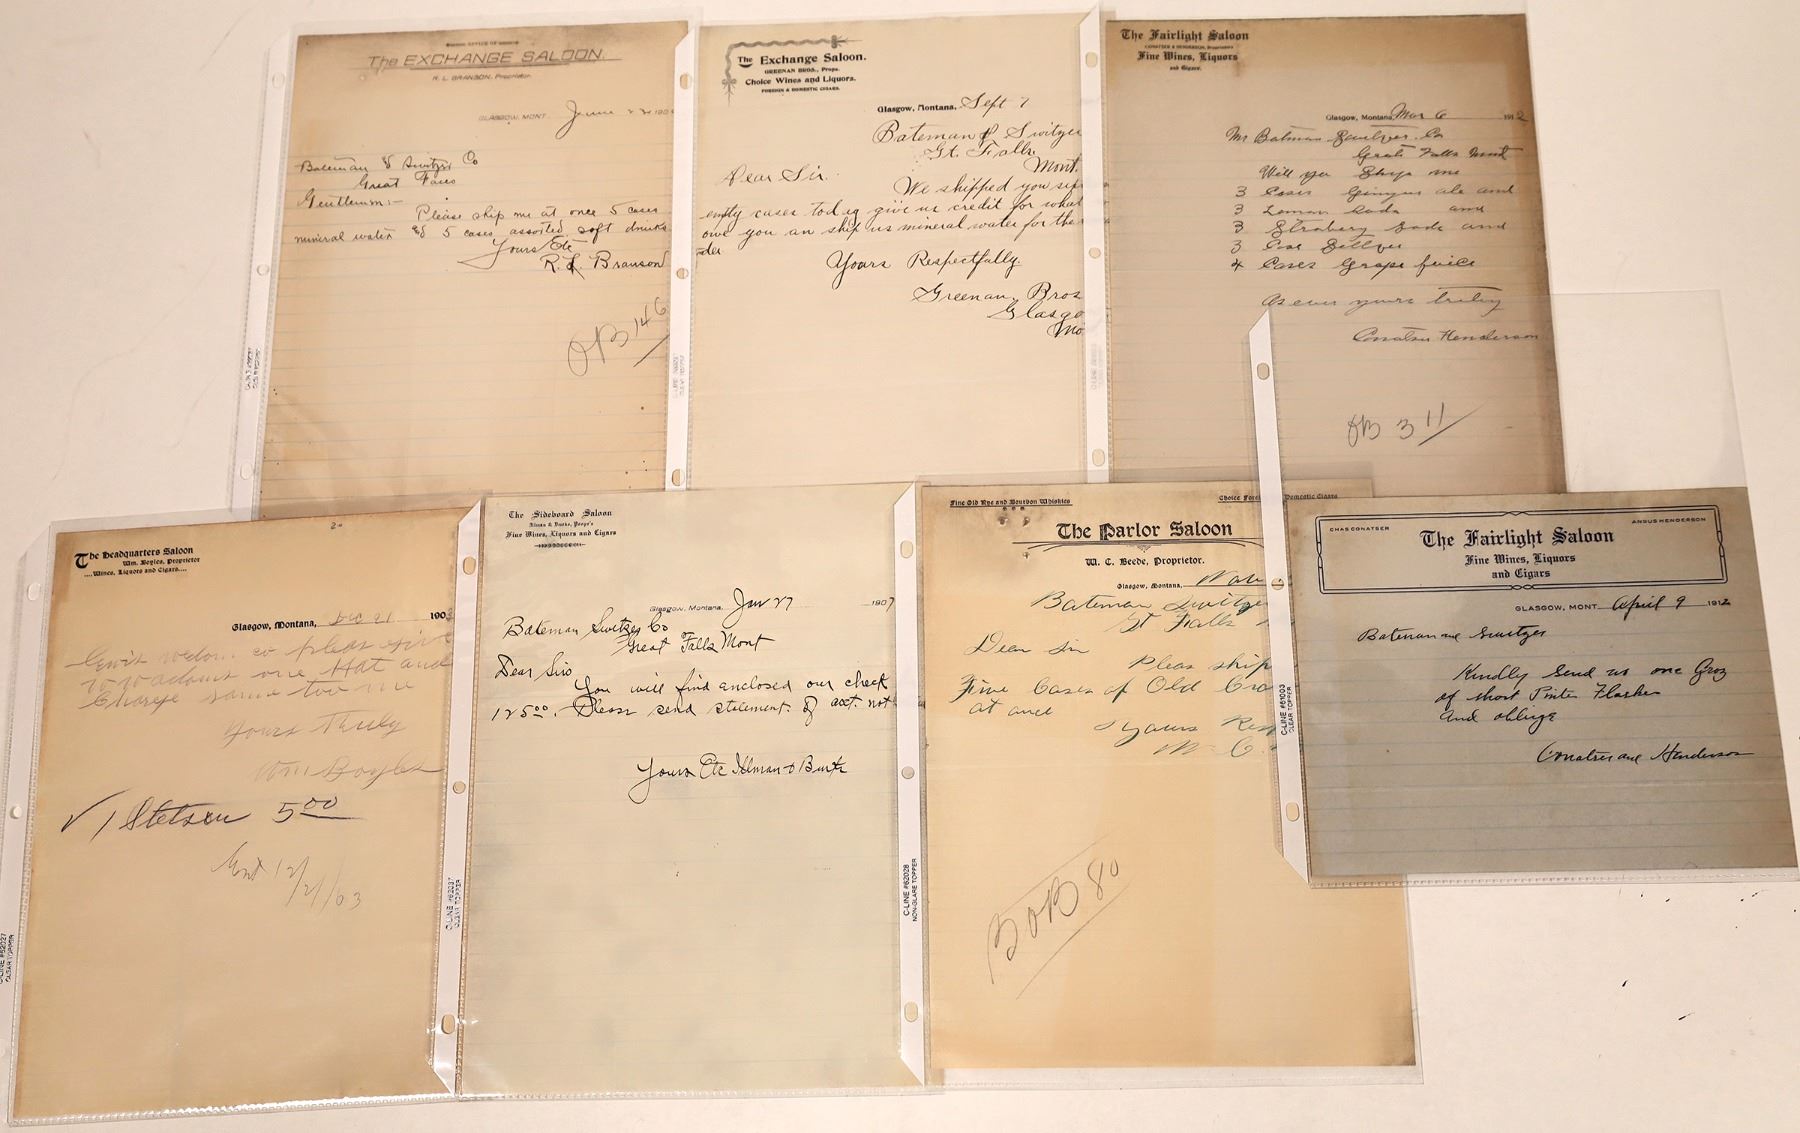 The EXCHANGE SALOON.
R. L. BRANSON, Proprietor.
GLASGOW, MONT. June 23 190
Bateman & Switzer Co
Great Falls
Gentlemen:-
Please ship me at once 5 cases
mineral water & 5 cases assorted soft drinks
Yours Etc
R. L. Branson
OB 146
The Exchange Saloon.
GREENAN BROS., Props.
Choice Wines and Liquors.
FOREIGN & DOMESTIC CIGARS.
Glasgow, Montana, Sept 7
Bateman & Switzer
Gt. Falls
Mont.
Dear Sir.
We shipped you six
emty cases today give us credit for what
owe you an ship us mineral water for the
der
Yours Respectfully
Greenan Bros
Glasgo
Mo
The Fairlight Saloon
CONATSER & HENDERSON, Proprietors
Fine Wines, Liquors
and Cigars.
Glasgow, Montana, Mar 6 1912
Mr Batman Switzer Co
Grate Falls Mont
Will you Ship me
3 Cases Ginger ale and
3 Lemon Soda and
3 Strabery Soda and
3 Case Seltzer
4 Cases Grape juice
As ever yours truley
Conatser Henderson
OB 311
The Headquarters Saloon
Wm. Boyles, Proprietor
....Wines, Liquors and Cigars....
Glasgow, Montana, Dec 21 190
Lewis Wedom co pleas give
adams one Hat and
Charge same too me
Yours Truly
Wm Boyles
√ 1 Stetson 5.00
Ent 12/21/03
The Sideboard Saloon
Fine Wines, Liquors and Cigars
Glasgow, Montana, Jan 27 1907
Bateman Switzer Co
Great Falls Mont
Dear Sirs
You will find enclosed our check
125.00. Please send statement of acct. not
Yours Etc Illman & Burke
Fine Old Rye and Bourbon Whiskies
Choice Foreign Domestic Cigars
The Parlor Saloon
W. C. Beede, Proprietor.
Glasgow, Montana,
Bateman Switze
Gt Falls
Dear Sir
Pleas ship
Five Cases of Old Cro
at once
Yours Res
W. C.
BOB 80
CHAS CONATSER
ANGUS HENDERSON
The Fairlight Saloon
Fine Wines, Liquors
and Cigars
GLASGOW, MONT. April 9 1912
Bateman and Switzer
Kindly Send us one Groz
of short Pints Flasks
and oblige
Conatser and Henderson
C-LINE #62027
CLEAR TOPPER
C-LINE #62037
CLEAR TOPPER
C-LINE #62028
NON-GLARE TOPPER
C-LINE #61003
CLEAR TOPPER